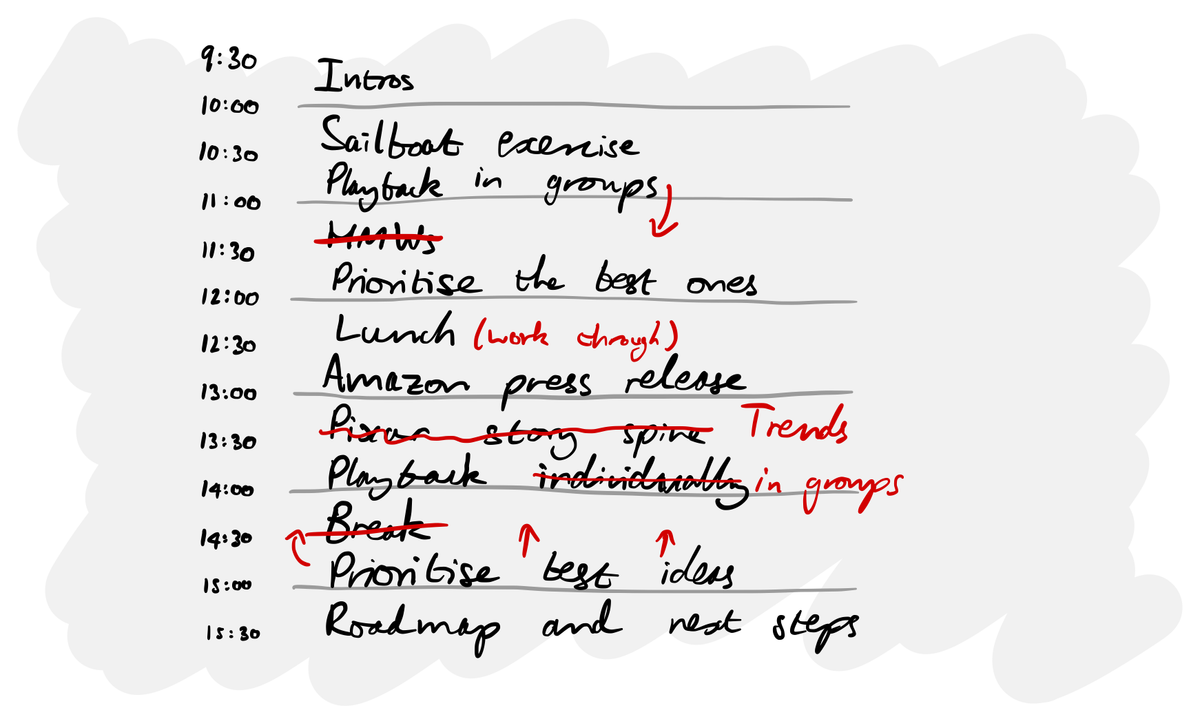 9:30
Intros
10:00
Sailboat exercise
10:30
Playback in groups
11:00
HMWs
11:30
Prioritise the best ones
12:00
Lunch (work through)
12:30
Amazon press release
13:00
Pixar story spine Trends
13:30
Playback individually in groups
14:00
Break
14:30
Prioritise best ideas
15:00
Roadmap and next steps
15:30